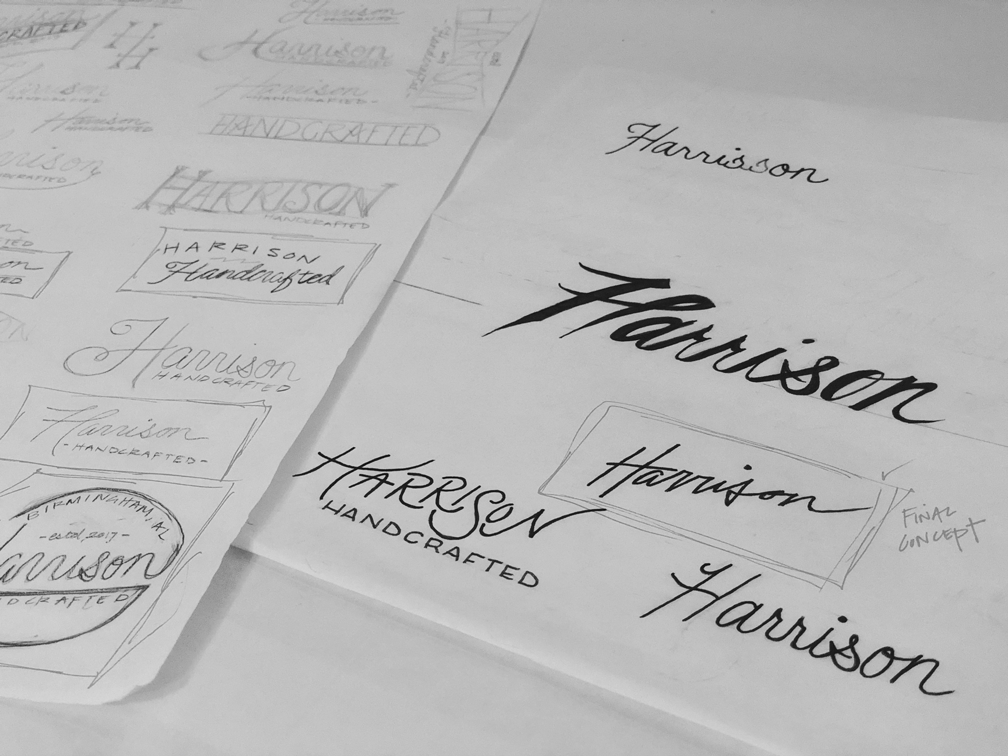 CRAFTED
H
H
Harrison
Harrison
HANDCRAFTED
HARRISON
Handcrafted
Harrison
HANDCRAFTED-
Harrison
HANDCRAFTED
HANDCRAFTED
HARRISON
HANDCRAFTED
HARRISON
Handcrafted
Harrison
HANDCRAFTED
Harrison
-HANDCRAFTED-
BIRMINGHAM, AL
-estd. 2017-
arrison
DCRAFTED
Harrisson
Harrison
Harrison
FINAL
CONCEPT
HARRISON
HANDCRAFTED
Harrison